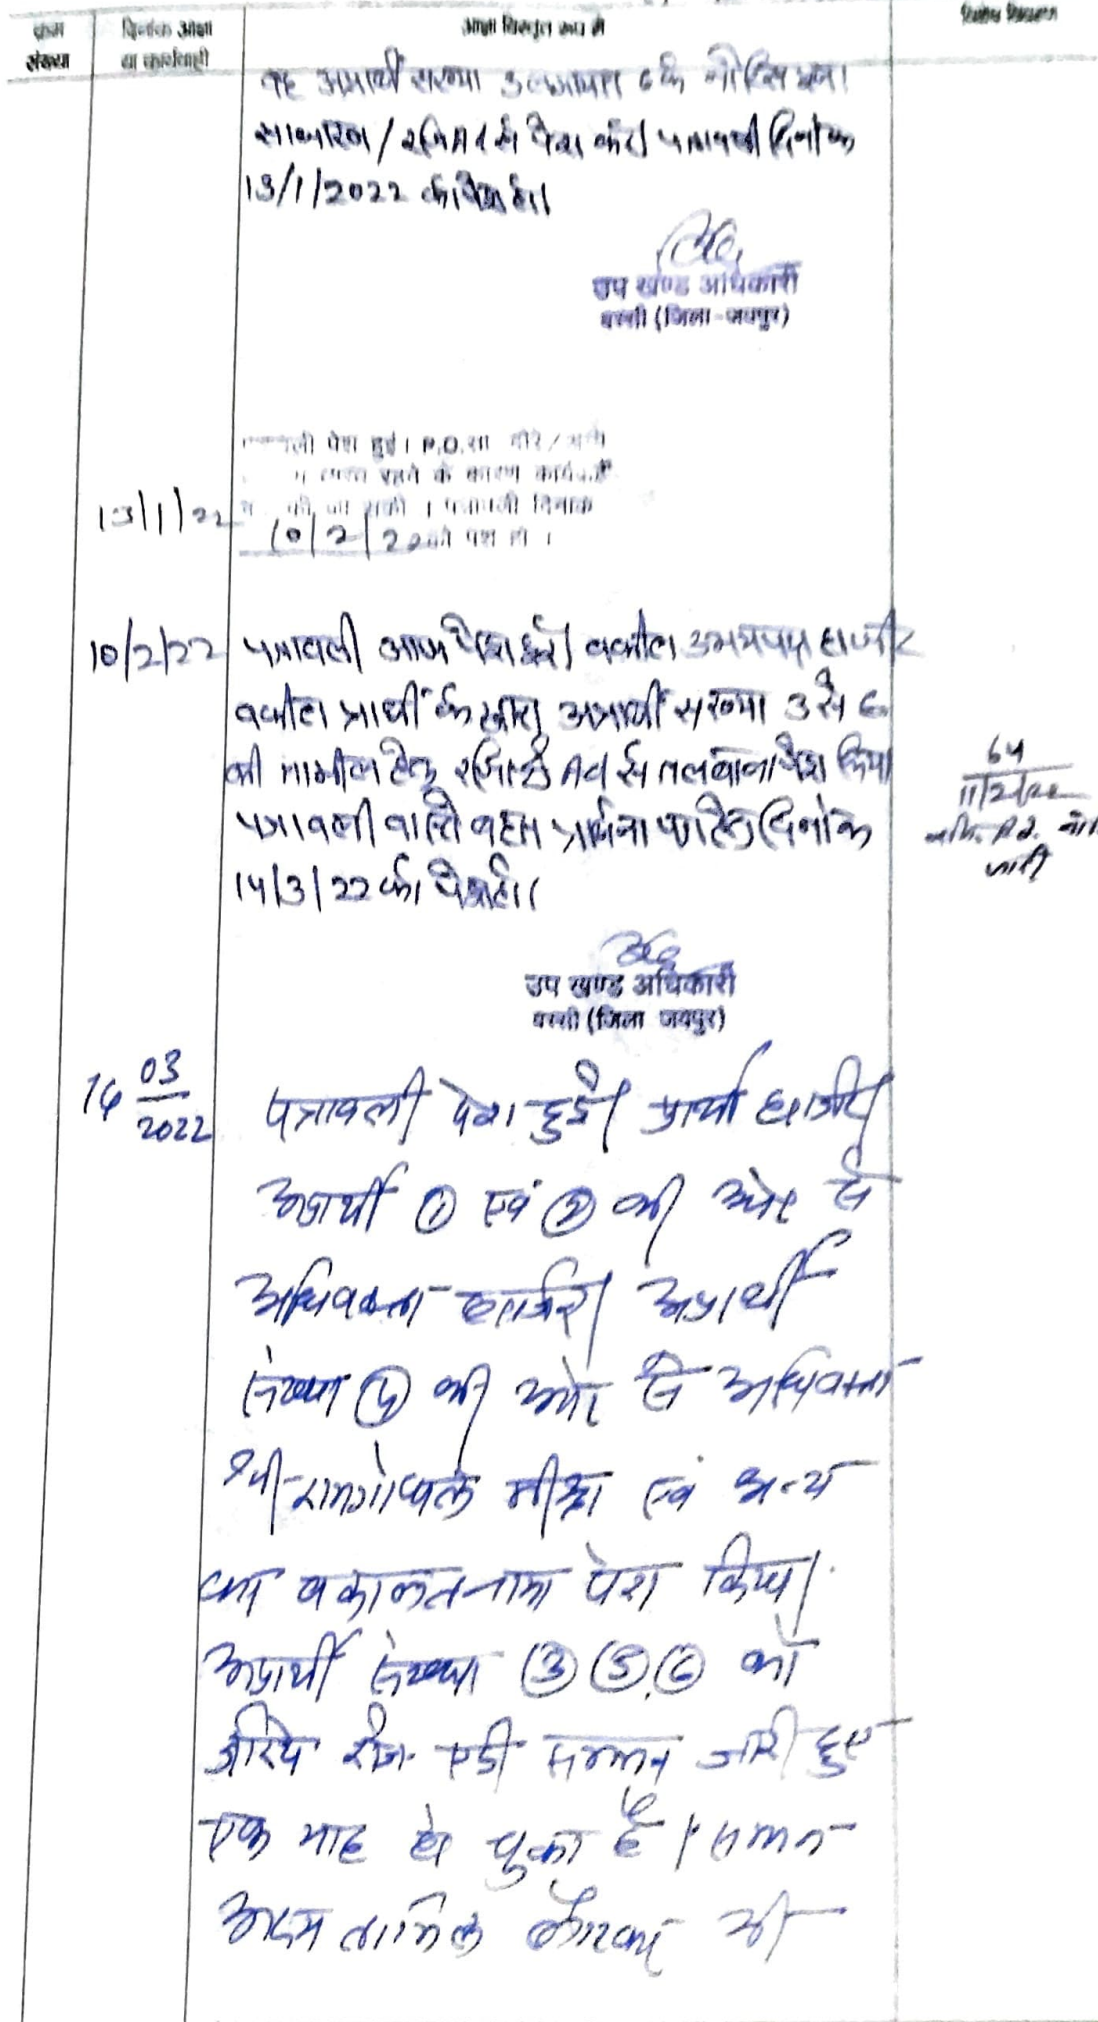 क्रम दिनांक आज्ञा आज्ञा विस्तृत रूप में विशेष विवरण
संख्या या कार्यवाही
अप्रार्थी संख्या 3 लगायत 6 के नोटिस
साधारण / रजि A.D से पेश करें। पत्रावली दिनांक
13/1/2022 को पेश हो।
उप खण्ड अधिकारी
बस्सी (जिला-जयपुर)
ली पेश हुई। P.O. सा दौरे /
व्यस्त रहने के कारण
13/1/22 की जा सकी । पत्रावली दिनांक
10/2/22 को पेश हो ।
10/2/22 पत्रावली आज पेश हुई। वकील उभयपक्ष हाजिर
वकील प्रार्थी के द्वारा अप्रार्थी संख्या 3 से 6
की तामील हेतु रजिस्ट्री A.D से तलबाना पेश किया
पत्रावली वास्ते बहस प्रार्थना पत्र हेतु दिनांक
14/3/22 को पेश हो।
64
11/2/22
जारी
उप खण्ड अधिकारी
बस्सी (जिला जयपुर)
14 03/2022 पत्रावली पेश हुई। प्रार्थी हाजिर।
अप्रार्थी ① एवं ② की ओर से
अधिवक्ता हाजिर। अप्रार्थी
संख्या ④ की ओर से अधिवक्ता
श्री रामगोपाल मीणा एवं अन्य
का वकालतनामा पेश किया।
अप्रार्थी संख्या ③ ⑤, ⑥ को
जरिये रजि. एडी सम्मन जारी हुए
एक माह हो चुका है। सम्मन
अदम तामिल लौटकर भी